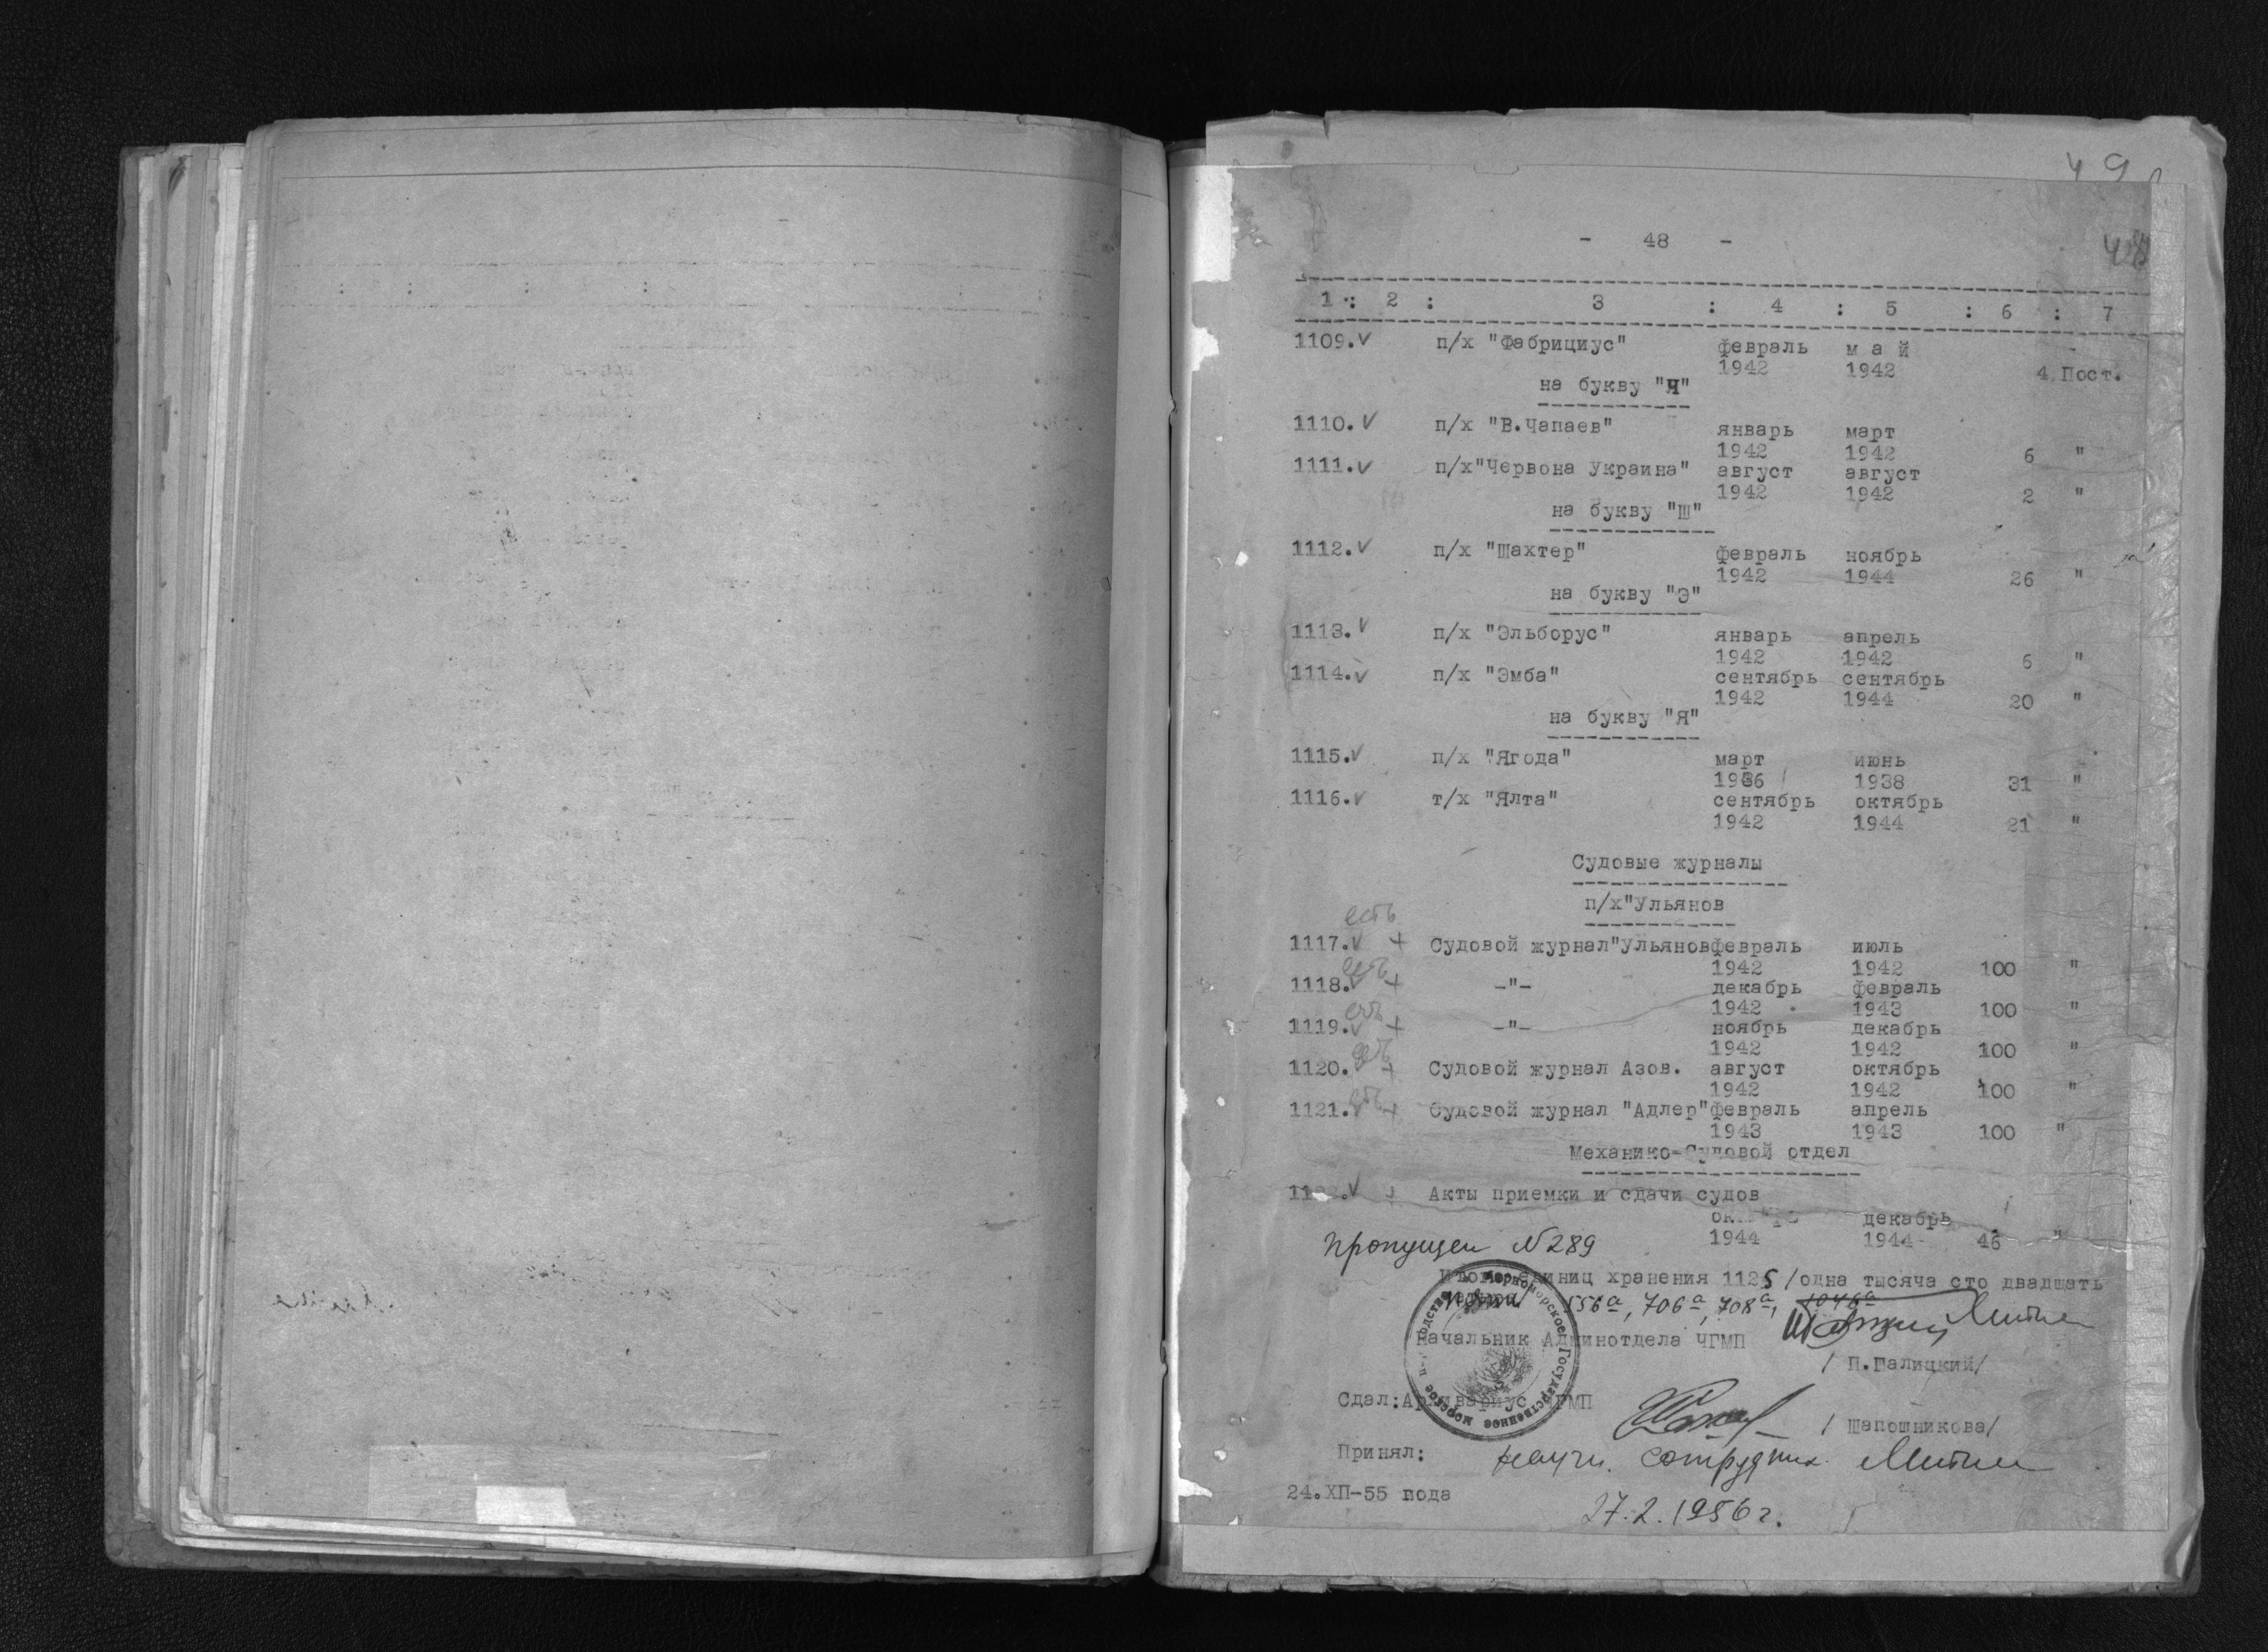 49
- 48 -
1 : 2 : 3 : 4 : 5 : 6 : 7
1109. п/х "Фабрициус" февраль м а й
1942 1942 4 Пост.
на букву "Ч"
1110. п/х "В.Чапаев" январь март
1942 1942 6 "
1111. п/х"Червона Украина" август август
1942 1942 2 "
на букву "Ш"
1112. п/х "Шахтер" февраль ноябрь
1942 1944 26 "
на букву "Э"
1113. п/х "Эльборус" январь апрель
1942 1942 6 "
1114. п/х "Эмба" сентябрь сентябрь
1942 1944 20 "
на букву "Я"
1115. п/х "Ягода" март июнь
1936 1938 31 "
1116. т/х "Ялта" сентябрь октябрь
1942 1944 21 "
Судовые журналы
п/х"Ульянов
есть
1117. + Судовой журнал"Ульянов февраль июль
1942 1942 100 "
есть
1118. + -"- декабрь февраль
1942 1943 100 "
есть
1119. + -"- ноябрь декабрь
1942 1942 100 "
есть
1120. + Судовой журнал Азов. август октябрь
1942 1942 100 "
есть
1121. + Судовой журнал "Адлер" февраль апрель
1943 1943 100 "
Механико-Судовой отдел
Акты приемки и сдачи судов
декабрь
1944 1944 46 "
Пропущен N289
Итого единиц хранения 1125 /одна тысяча сто двадцать
556а, 706а, 708а, 1046а
Начальник Админотдела ЧГМП
/ П.Галицкий/
Сдал:Архивариус ЧГМП
/ Шапошникова/
Принял: научн. сотрудник
24.ХП-55 года
27.2.1956г.
Черноморское Государственное морское пароходство